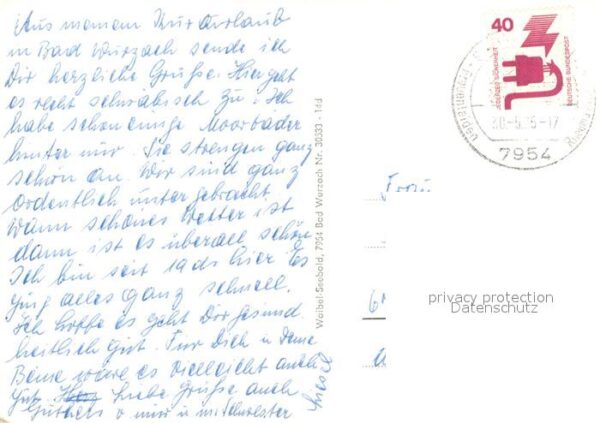 Aus meinem Kurzurlaub
in Bad Wurzach sende ich
Dir herzliche Grüße. Hier geht
es recht schwäbisch zu. Ich
habe schon einige Moorbäder
hinter mir. Sie strengen ganz
schön an. Wir sind ganz
ordentlich untergebracht
Wann schönes Wetter ist
dann ist es überall schön
Ich bin seit 19ds hier Es
ging alles ganz schnell.
Ich hoffe es geht Dir gesund
heitlich gut. Für Dich u Deine
Beine wäre es vielleicht auch
gut. Liebe Grüße auch
v mir u m. Schwester
Liesel
Waibel-Seebold, 7954 Bad Wurzach Nr. 30333 - 14d
40
JEDERZEIT SICHERHEIT
DEUTSCHE BUNDESPOST
7954
Frau
privacy protection
Datenschutz